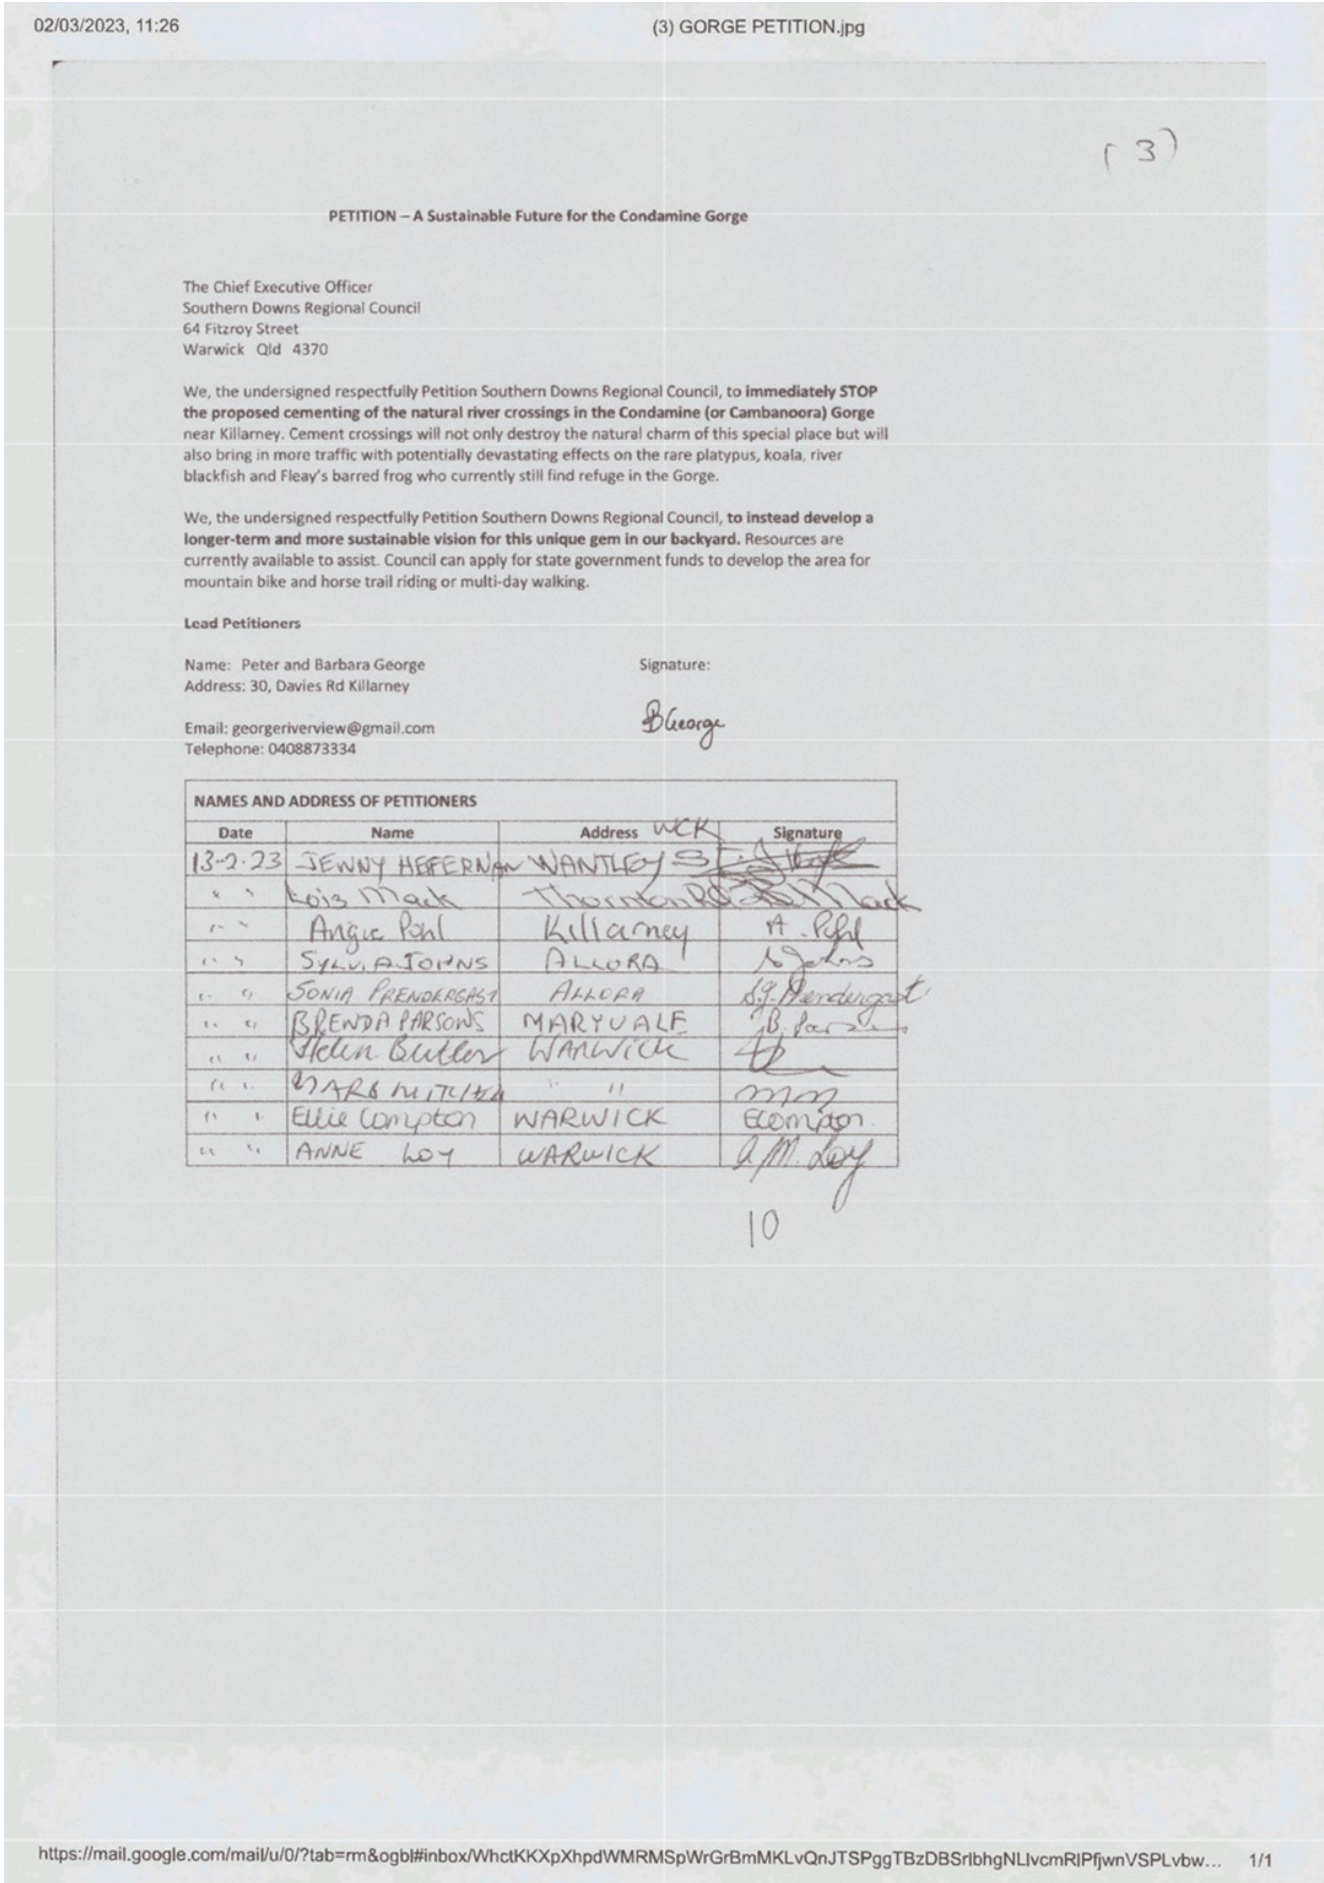 02/03/2023, 11:26 (3) GORGE PETITION.jpg
(3)
PETITION – A Sustainable Future for the Condamine Gorge
The Chief Executive Officer
Southern Downs Regional Council
64 Fitzroy Street
Warwick Qld 4370
We, the undersigned respectfully Petition Southern Downs Regional Council, to immediately STOP
the proposed cementing of the natural river crossings in the Condamine (or Cambanoora) Gorge
near Killarney. Cement crossings will not only destroy the natural charm of this special place but will
also bring in more traffic with potentially devastating effects on the rare platypus, koala, river
blackfish and Fleay's barred frog who currently still find refuge in the Gorge.
We, the undersigned respectfully Petition Southern Downs Regional Council, to instead develop a
longer-term and more sustainable vision for this unique gem in our backyard. Resources are
currently available to assist. Council can apply for state government funds to develop the area for
mountain bike and horse trail riding or multi-day walking.
Lead Petitioners
Name: Peter and Barbara George Signature:
Address: 30, Davies Rd Killarney
BGeorge
Email: georgeriverview@gmail.com
Telephone: 0408873334
NAMES AND ADDRESS OF PETITIONERS
Date Name Address WCK Signature
13-2-23 JENNY HEFERNAN WANTLEY ST
" " Lois Mack Thornton Rd Mack
" " Angie Pohl Killarney A. Pohl
" " SYLVIA JOHNS ALLORA S Johns
" " SONIA PRENDERGAST ALLORA S.J. Prendergast
" " BRENDA PARSONS MARYVALE B. Parsons
" " Helen Butler WARWICK
" " " "
" " Ellie Compton WARWICK ECompton
" " ANNE LOY WARWICK A.M. Loy
10
https://mail.google.com/mail/u/0/?tab=rm&ogbl#inbox/WhctKKXpXhpdWMRMSpWrGrBmMKLvQnJTSPggTBzDBSrlbhgNLlvcmRlPfjwnVSPLvbw... 1/1